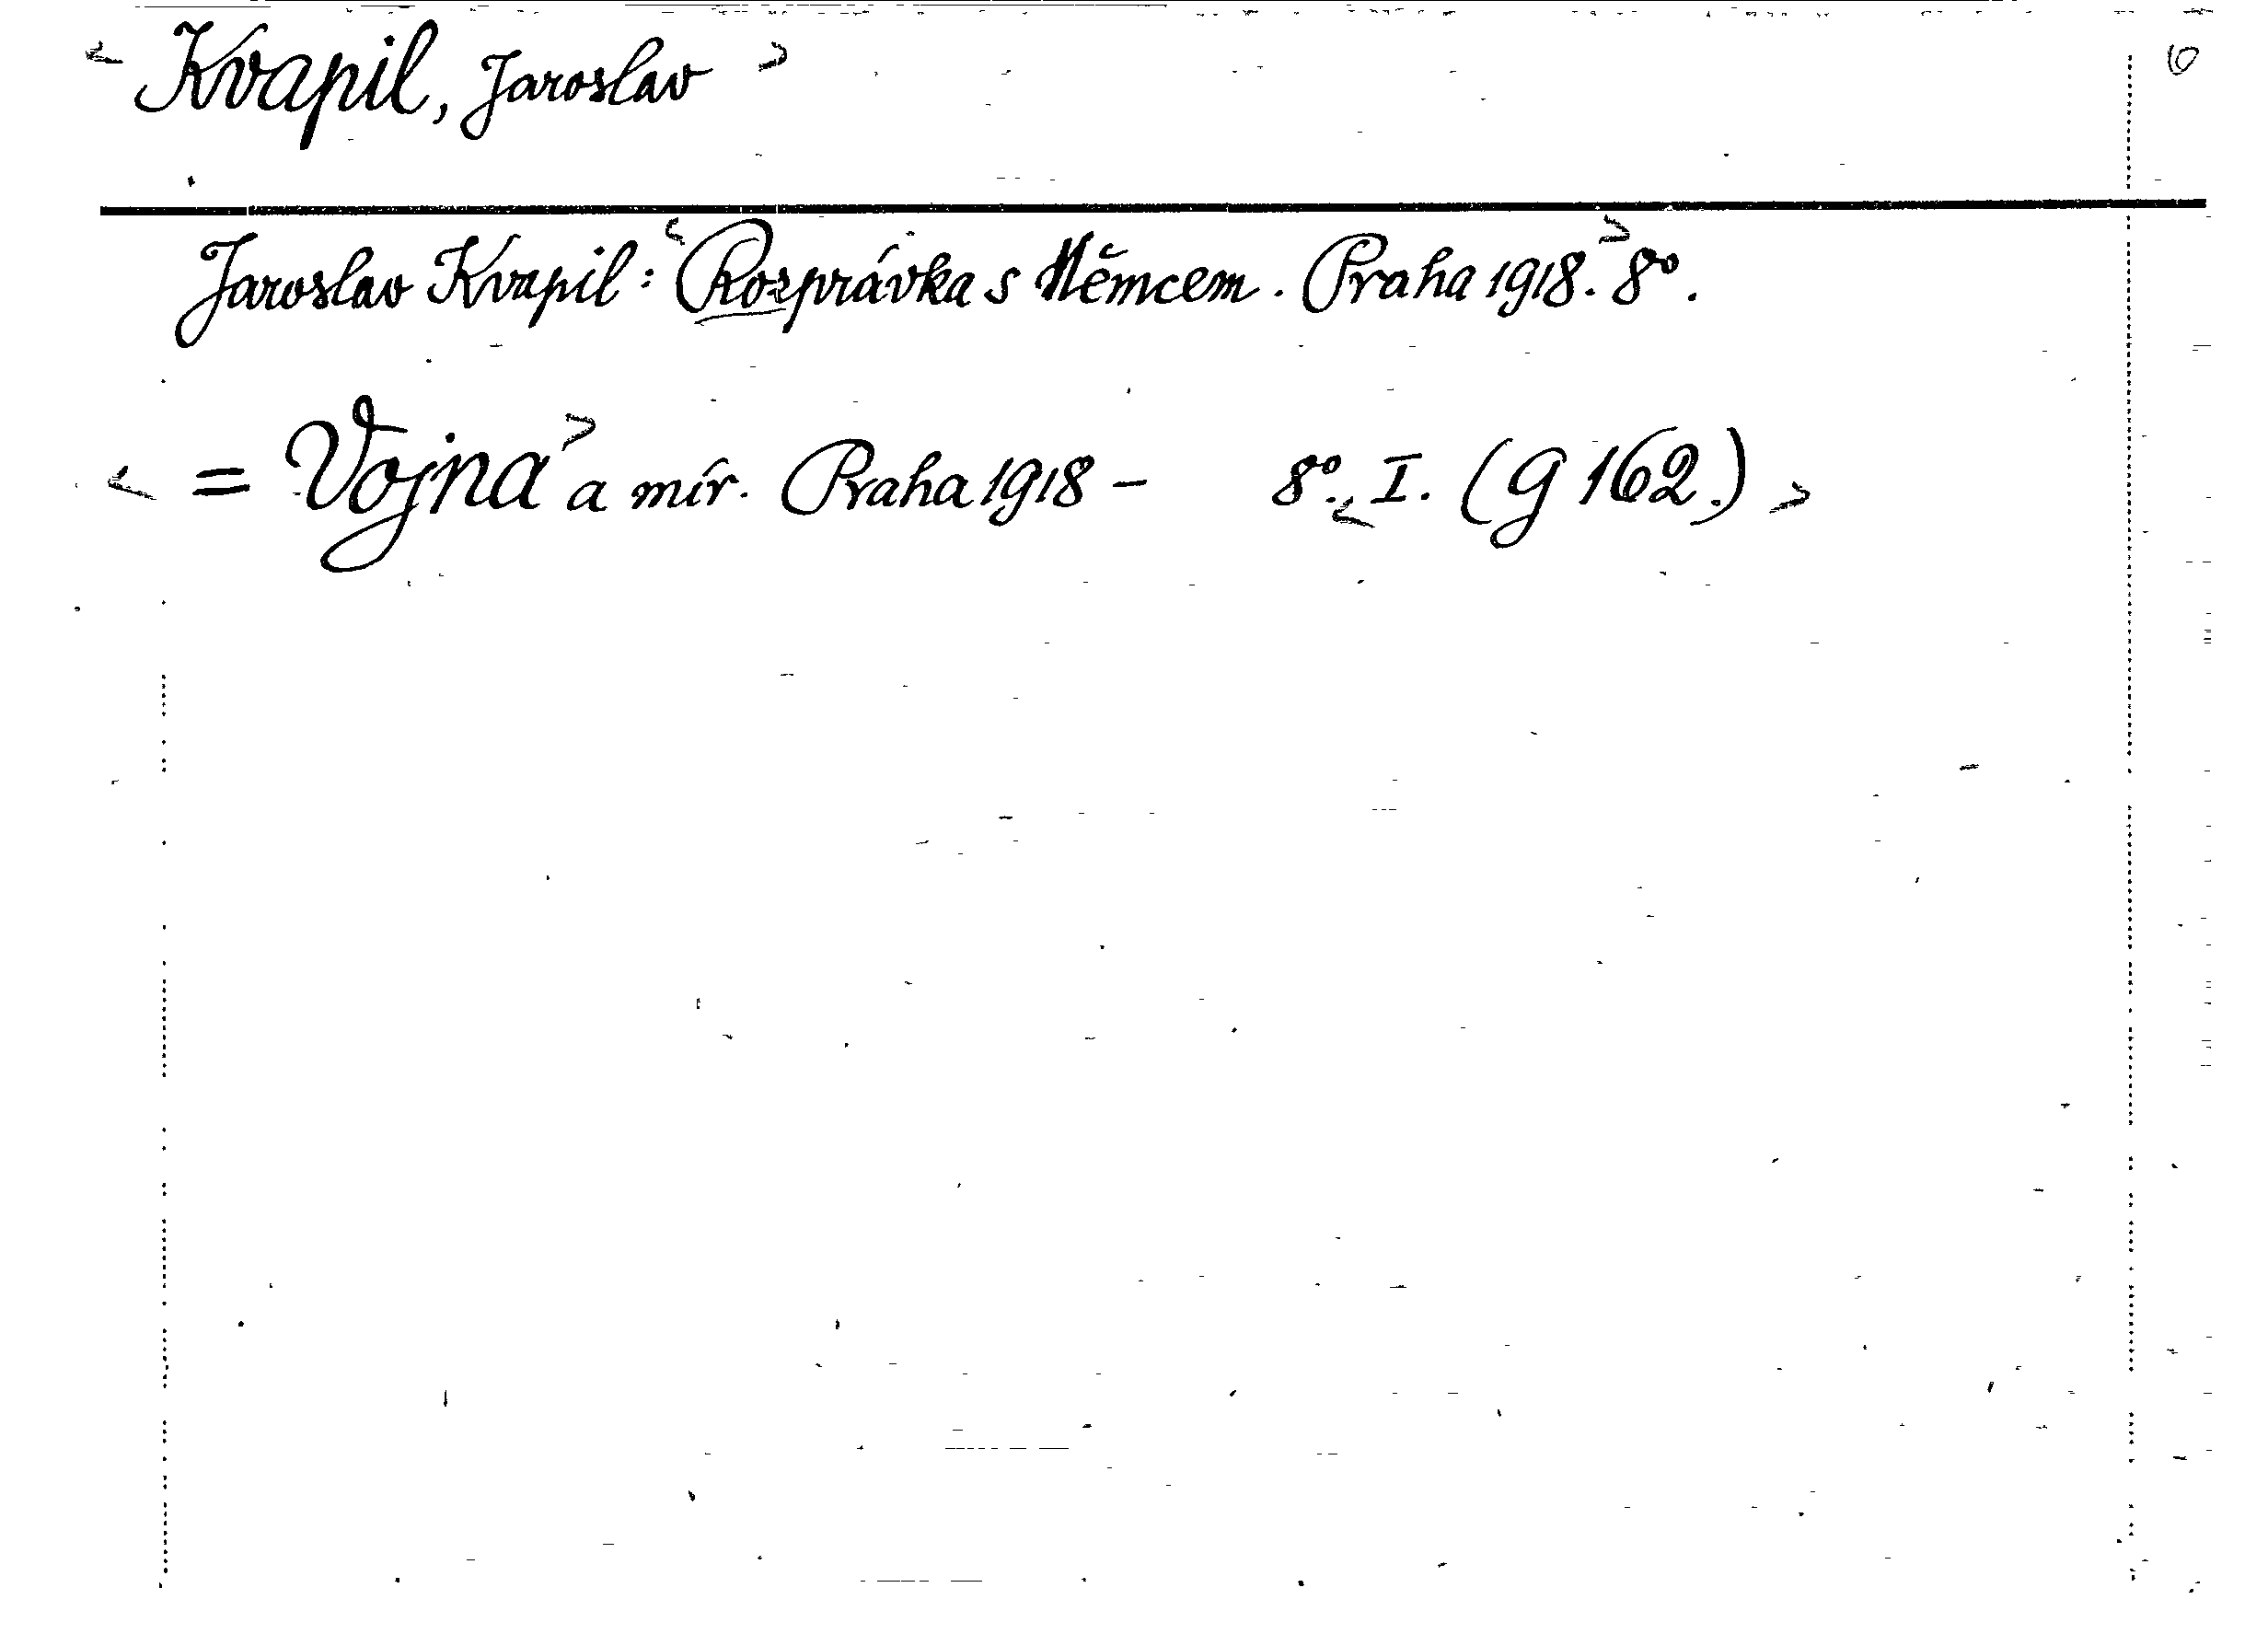 < Kvapil, Jaroslav >
Jaroslav Kvapil: <Rozprávka s Němcem. Praha 1918.> 8°.
< = Vojna> a mír. Praha 1918 - 8°. < I. (G 162.) >